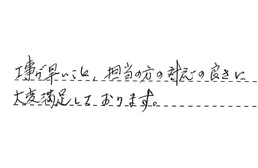 工事が早いこと、担当の方の対応の良さに
大変満足しております。